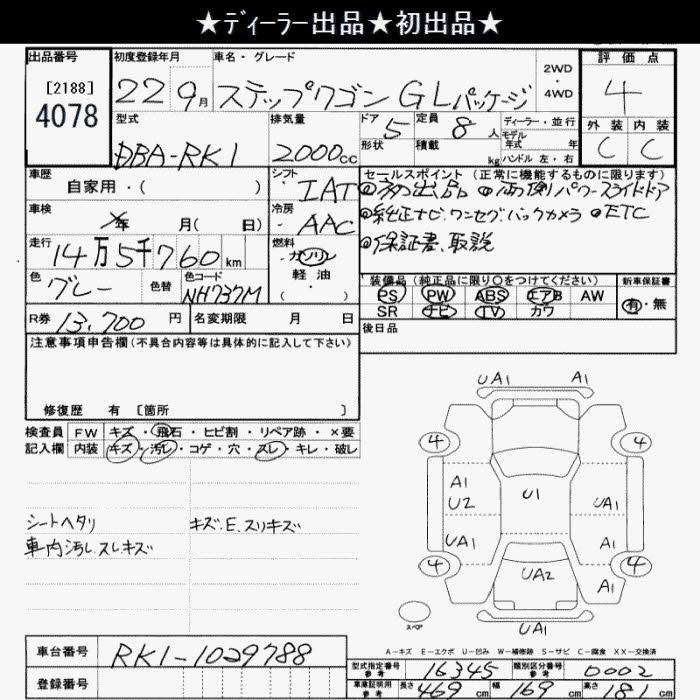 ★ディーラー出品★初出品★
出品番号
[2188]
4078
初度登録年月
22 9月
車名・グレード
ステップワゴン GLパッケージ
2WD
・
4WD
評価点
4
外装 内装
C C
型式
DBA-RK1
排気量
2000cc
ドア 5
形状
定員 8人
積載 kg
ディーラー・並行
モデル年式 年
ハンドル 左・右
車歴
自家用・( )
シフト
IAT
セールスポイント (正常に機能するものに限ります)
◎初出品 ◎両側パワースライドドア
◎純正ナビ.ワンセグ.バックカメラ ◎ETC
◎保証書、取説
車検
年 月( 日)
冷房
AAC
走行
14万5千760km
燃料
ガソリン
軽油
・( )
色
グレー
色替
色コード
NH737M
装備品 (純正品に限り○をつけてください)
PS PW ABS エアB AW
SR ナビ TV カワ
新車保証書
有・無
R券 13,700円
名変期限 月 日
後日品
注意事項申告欄(不具合内容等は具体的に記入して下さい)
修復歴 有 [箇所 ]
検査員
記入欄
FW キズ・飛石・ヒビ割・リペア跡・×要
内装 キズ・汚レ・コゲ・穴・スレ・キレ・破レ
シートヘタリ
車内汚レ.スレキズ
キズ.E.スリキズ
UA1 A1
4 4
A1
U2
U1
UA1
UA1
A1
4 4
UA2
A1
スペア
UA1
A-キズ E-エクボ U-凹み W-補修跡 S-サビ C-腐食 XX-交換済
車台番号
RK1-1029788
登録番号
型式指定番号
参考
16345
類別区分番号
参考
0002
車庫証明用
参考
長さ 469cm 幅 169cm 高さ 18 cm